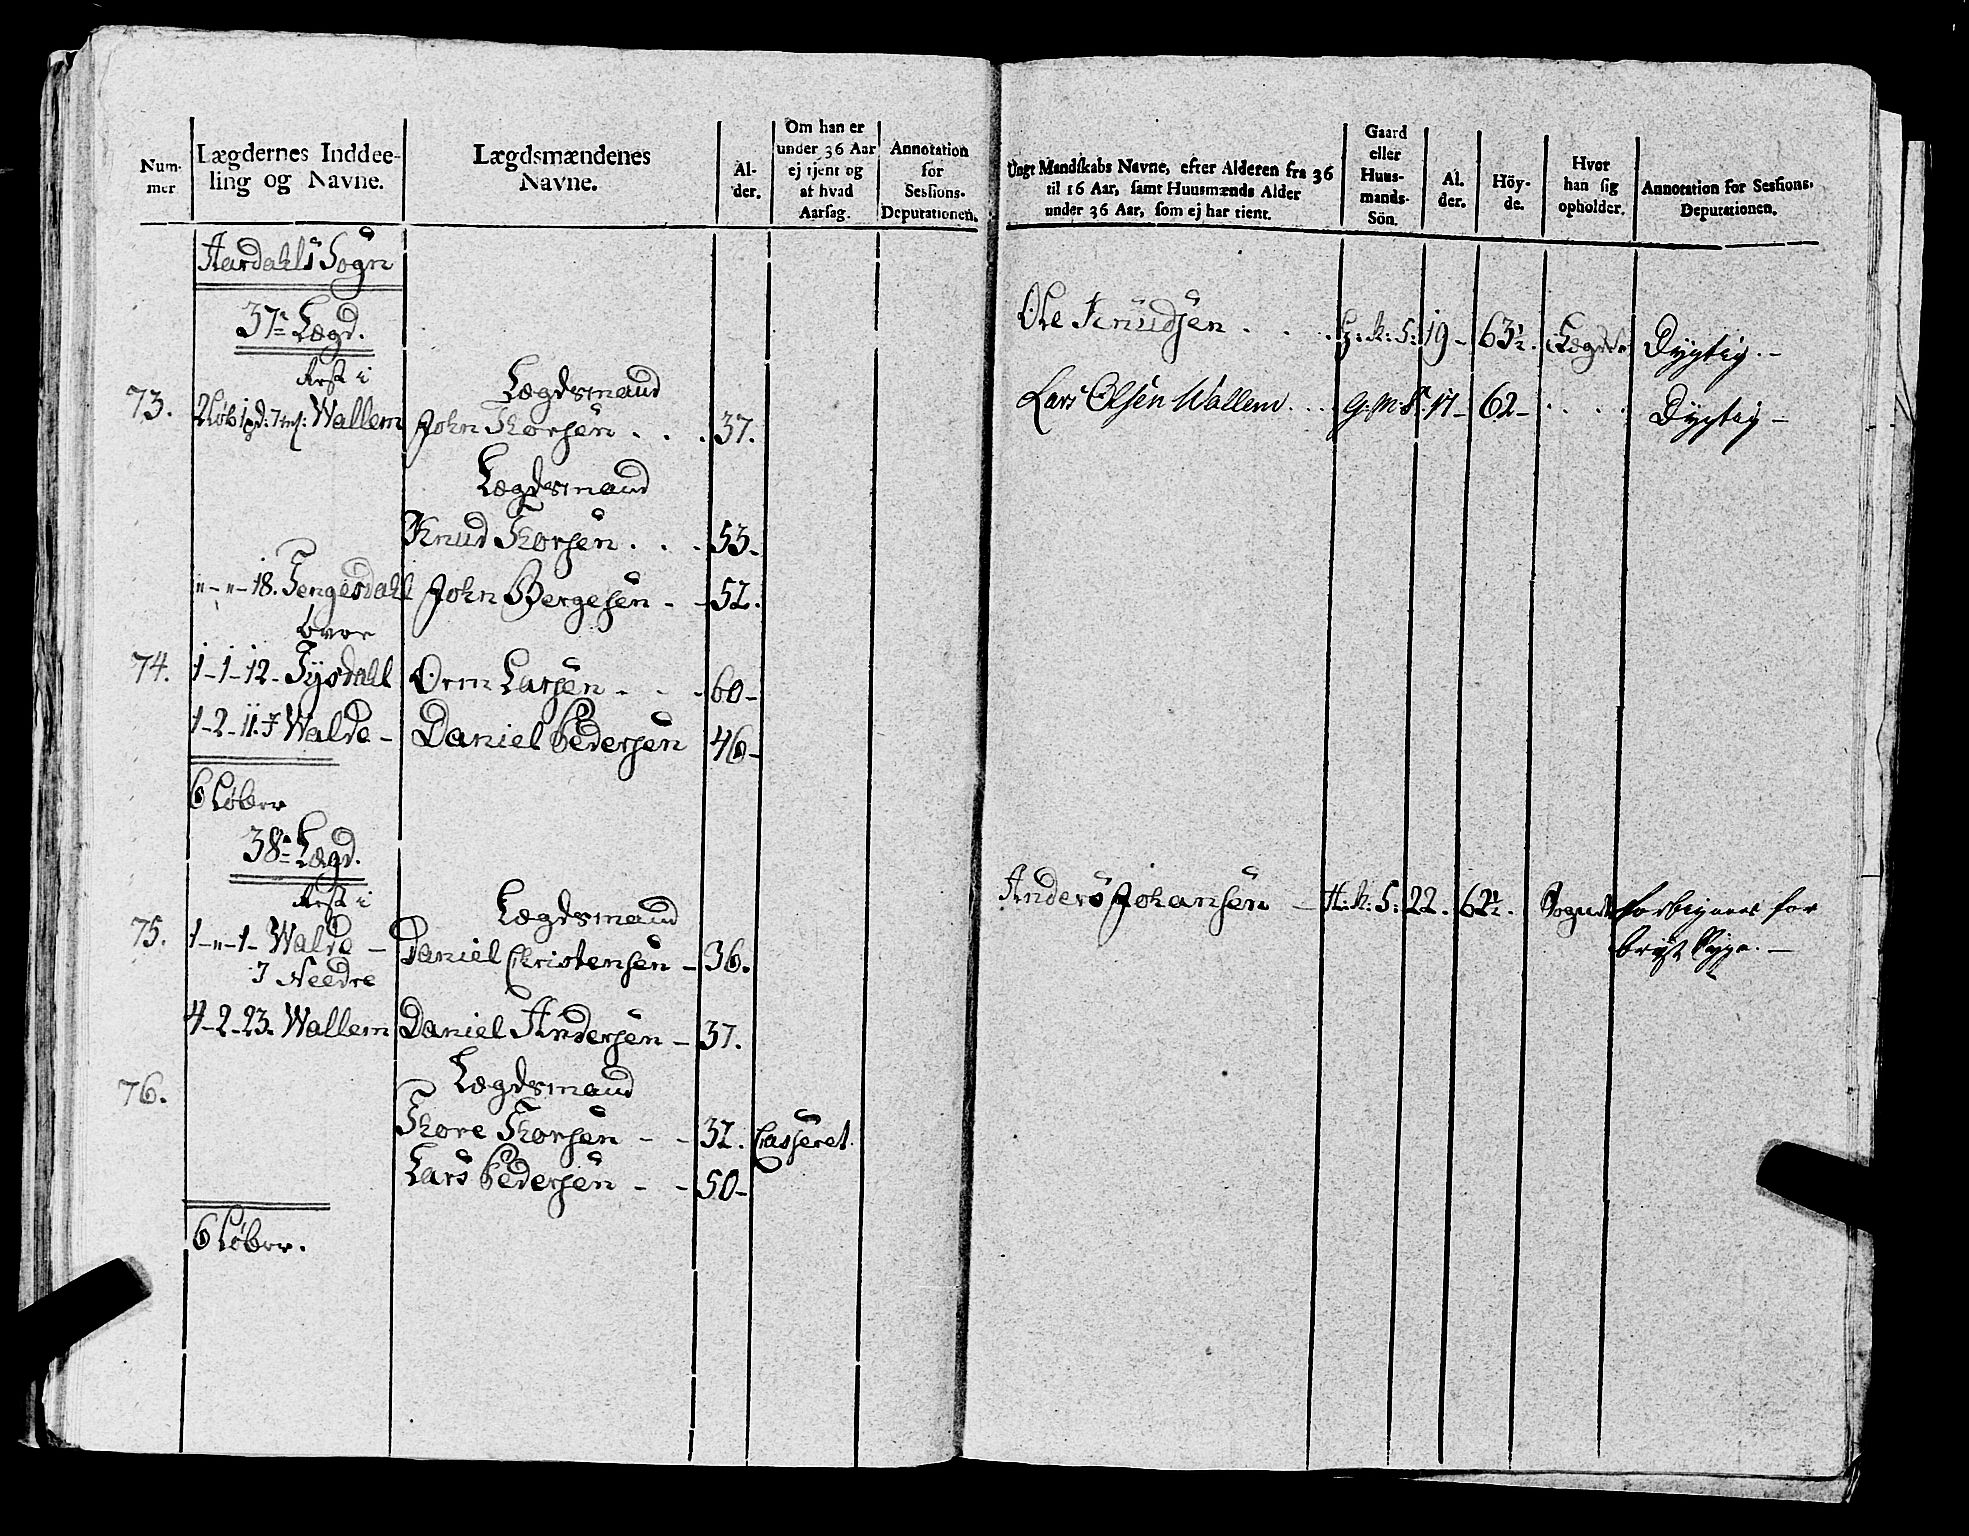 Num-
mer
Lægdernes Inddee-
ling og Navne.
Lægdsmændenes
Navne.
Al-
der.
Om han er
under 36 Aar
ej tjent og
at hvad
Aarsag.
Annotation
for
Sessions-
Deputationen.
Aardahls Sogn
37te Lægd.
Rest i
Lægdsmand
73. 2 Løb 1 pd: 7 mk: Wallem John Thorsen . . . 37.
Lægdsmand
Knud Thorsen . . . 53-
"-"-18. Tengesdahl John Bergesen - - 52.
74. 1-1-12- Tysdahl Orm Larsen - - - 60-
1-2-11. I Walde - Daniel Pedersen 46-
6 Løber
38te Lægd.
Rest i
Lægdsmand
75. 1-"-1- Walde - Daniel Christensen - 36.
I Needre
4-2-23. Wallem Daniel Andersen - 37.
Lægdsmand
76.
Thore Thorsen - - 32. Casseret.
Lars Pedersen - - 50-
6 Løber.
Ungt Mandskabs Navne, efter Alderen fra 36
til 16 Aar, samt Huusmænds Alder
under 36 Aar, som ej har tient.
Gaard
eller
Huus-
mands-
Sön.
Al.
der.
Höy-
de.
Hvor
han sig
opholder.
Annotation for Sessions-
Deputationen.
Ole Knudsen . . . 19- 63½. Lægdet Dygtig. -
Lars Olsen Wallem . . . G: M: S: 17- 62- . . . . Dygtig -
Anders Johansen - H: M: S: 22. 62½. Sognet forbigaaes for
bryst Syge. -